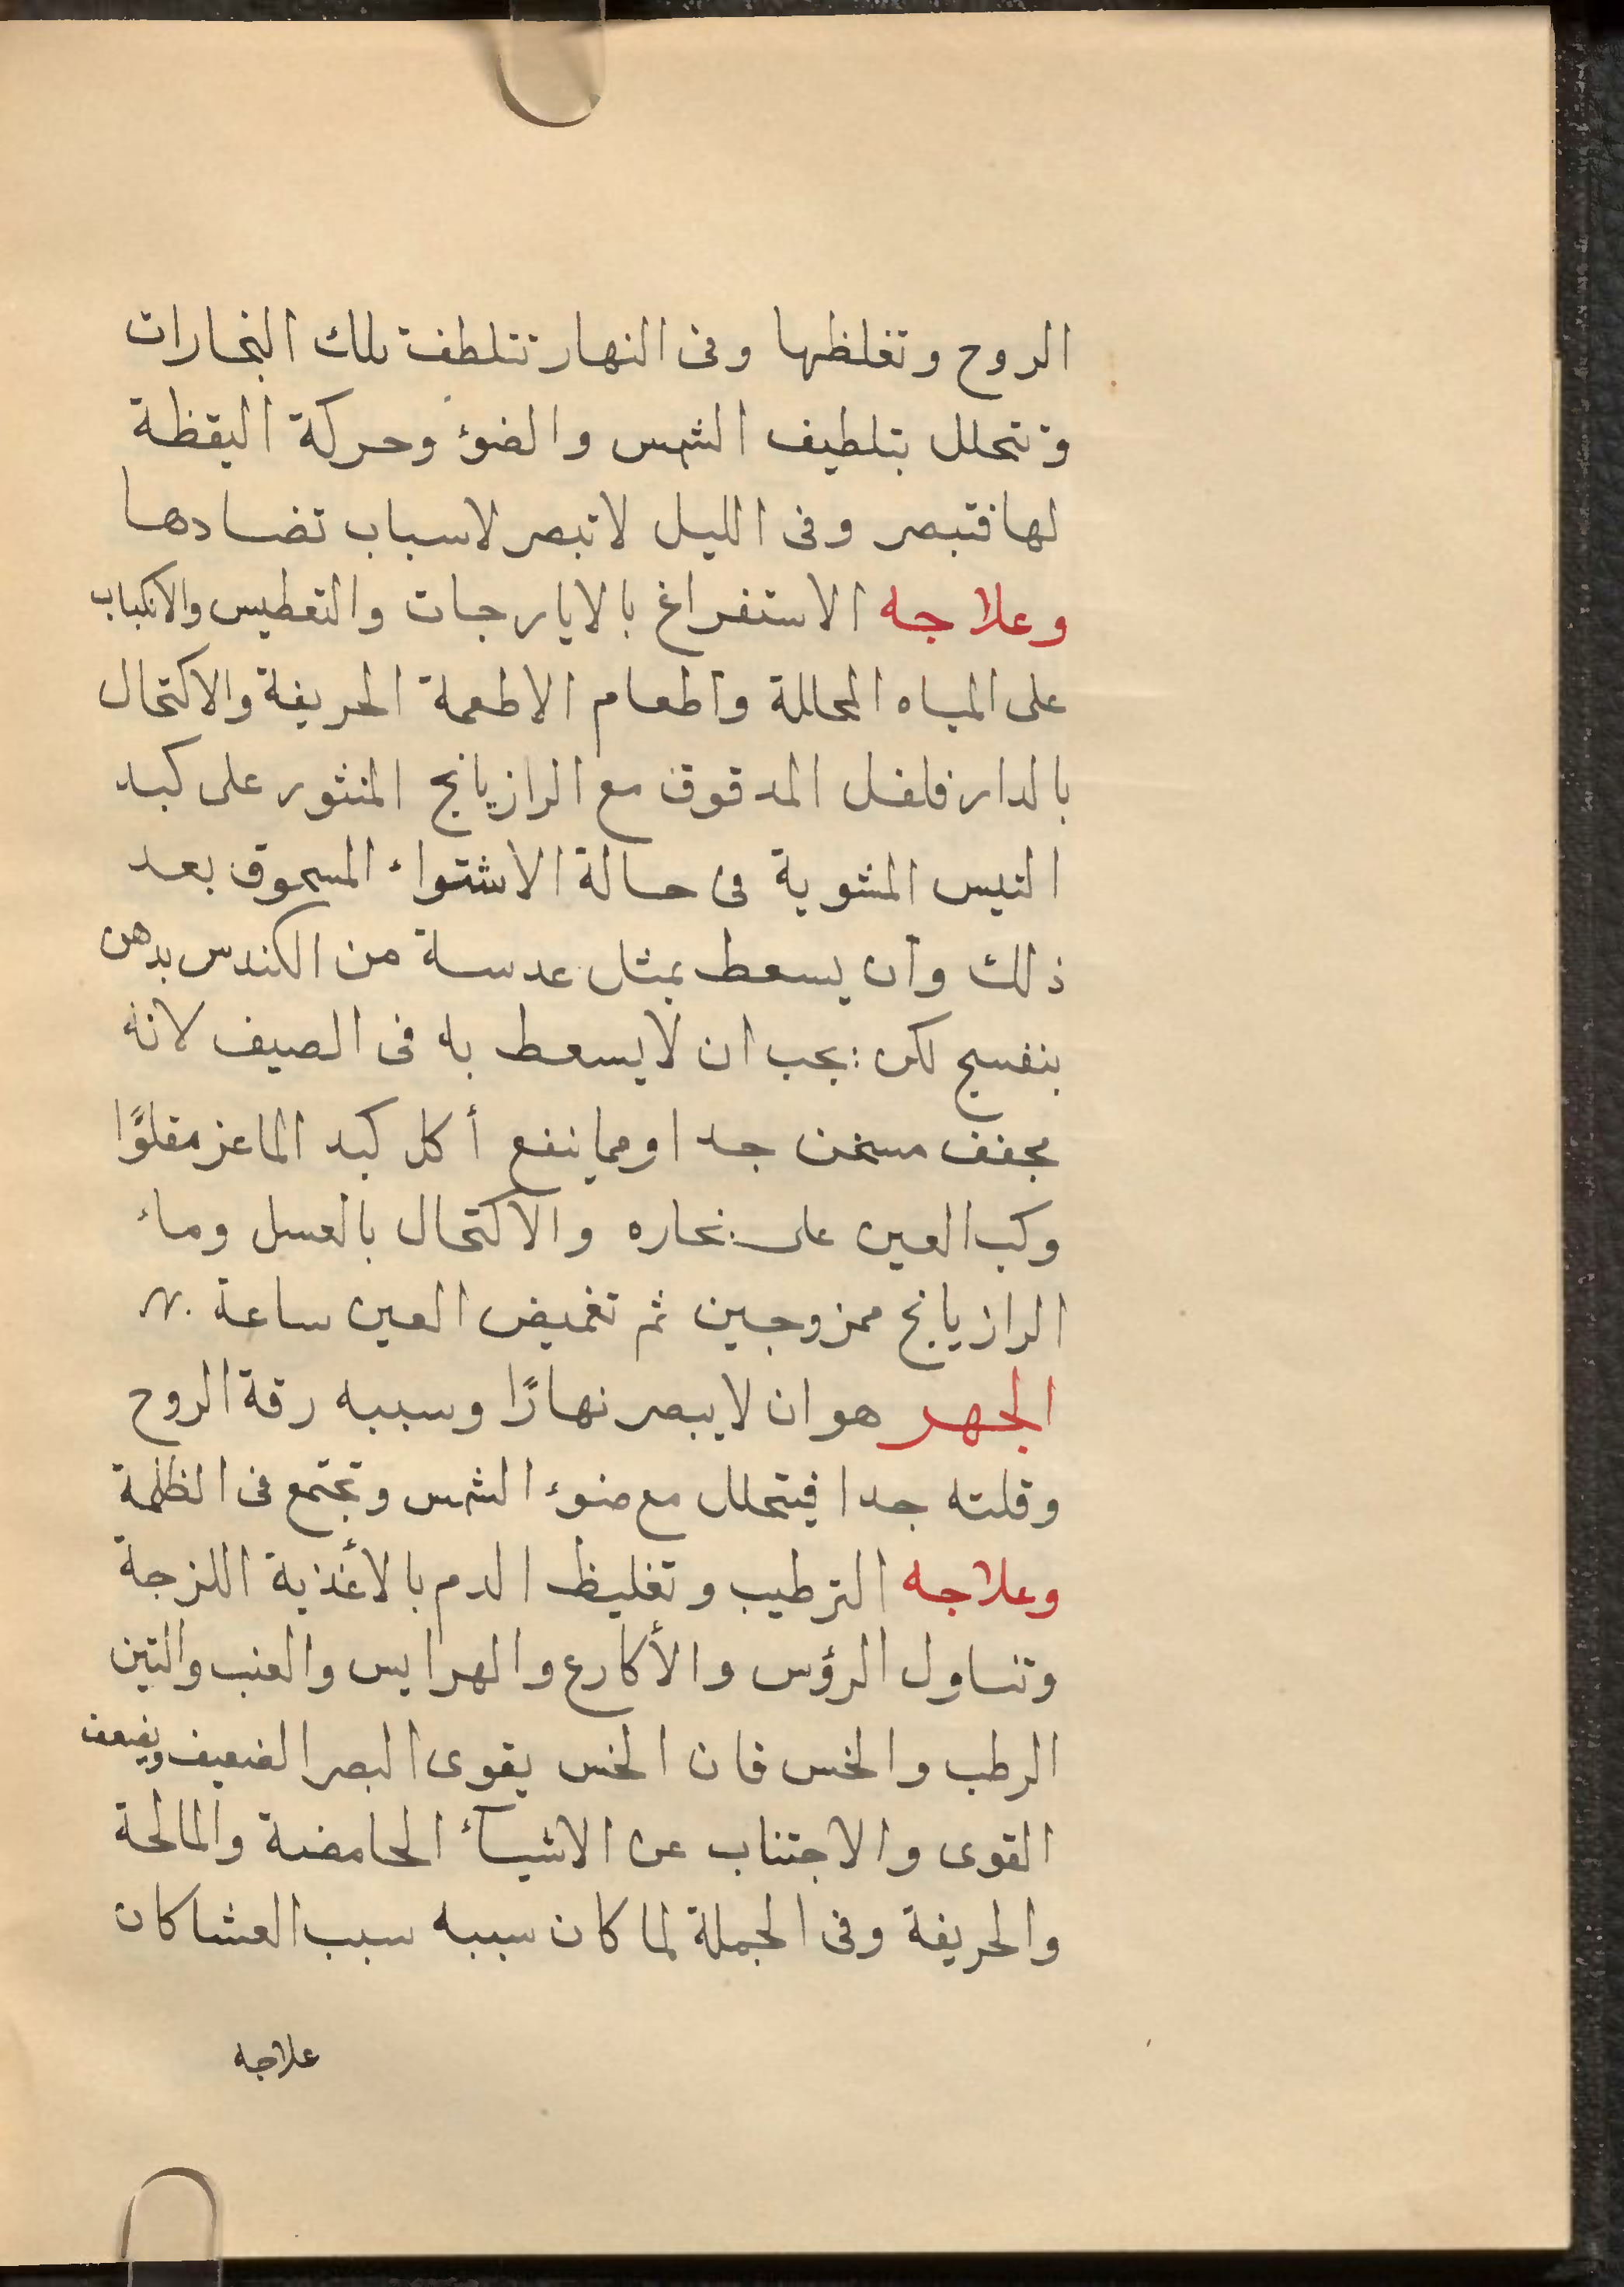 الروح وتغلظها وفى النهار تتلطف تلك البخارات
وتتحلل بتلطيف الشمس والضوء وحركة اليقظة
لها فتبصر وفى الليل لا تبصر لاسباب تضادها
وعلاجه الاستفراغ بالايارجات والتعطيس والانكباب
على المياه المحللة واطعام الاطعمة الحريفة والاكتحال
بالدارفلفل المدقوق مع الرازيانج المنثور على كبد
التيس المشوية فى حالة الاشتواء المسحوق بعد
ذلك وان يسعط بمثل عدسة من الكندس بدهن
بنفسج لكن يجب ان لا يسعط به فى الصيف لانه
مجفف مسخن جدا ومما ينفع أكل كبد الماعز مقلوًا
وكب العين على بخاره والاكتحال بالعسل وماء
الرازيانج ممزوجين ثم تغميض العين ساعة
الجهر هو ان لا يبصر نهارًا وسببه رقة الروح
وقلته جدا فيتحلل مع ضوء الشمس وتجتمع فى الظلمة
وعلاجه الترطيب وتغليظ الدم بالأغذية اللزجة
وتناول الرؤس والأكارع والهرايس والعنب والتين
الرطب والخس فان الخس يقوى البصر الضعيف ويضعف
القوى والاجتناب عن الاشيآء الحامضة والمالحة
والحريفة وفى الجملة لما كان سببه سبب العشا كان
علاجه